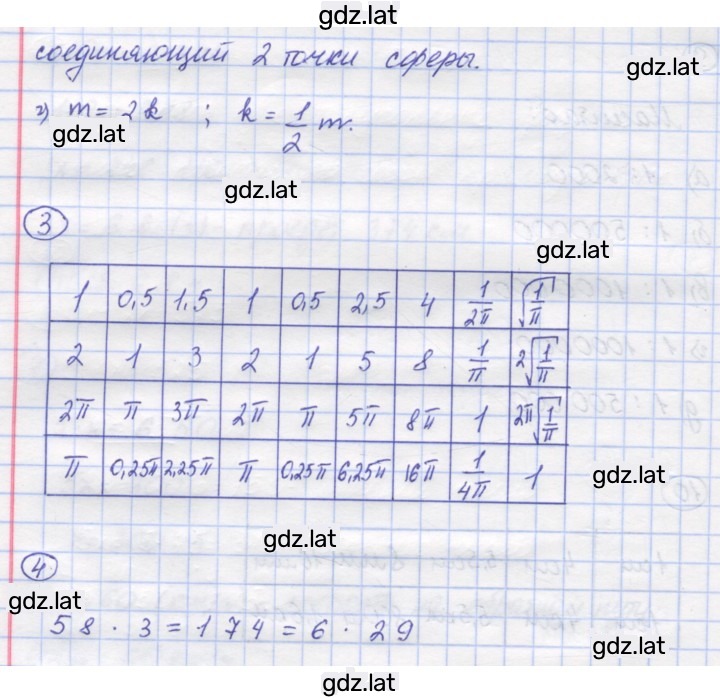 gdz.lat
соединяющий 2 точки сферы.
gdz.lat
г) m = 2k ; k = 1/2 m.
gdz.lat
gdz.lat
3
gdz.lat
1 0,5 1,5 1 0,5 2,5 4 1/2π √1/π
2 1 3 2 1 5 8 1/π 2√1/π
2π π 3π 2π π 5π 8π 1 2π√1/π
π 0,25π 2,25π π 0,25π 6,25π 16π 1/4π 1
gdz.lat
gdz.lat
4
gdz.lat
58 · 3 = 174 = 6 · 29
gdz.lat
gdz.lat